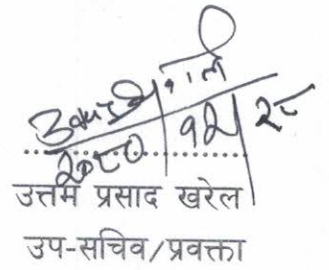 २०८०|१२|२८
उत्तम प्रसाद खरेल
उप-सचिव/प्रवक्ता